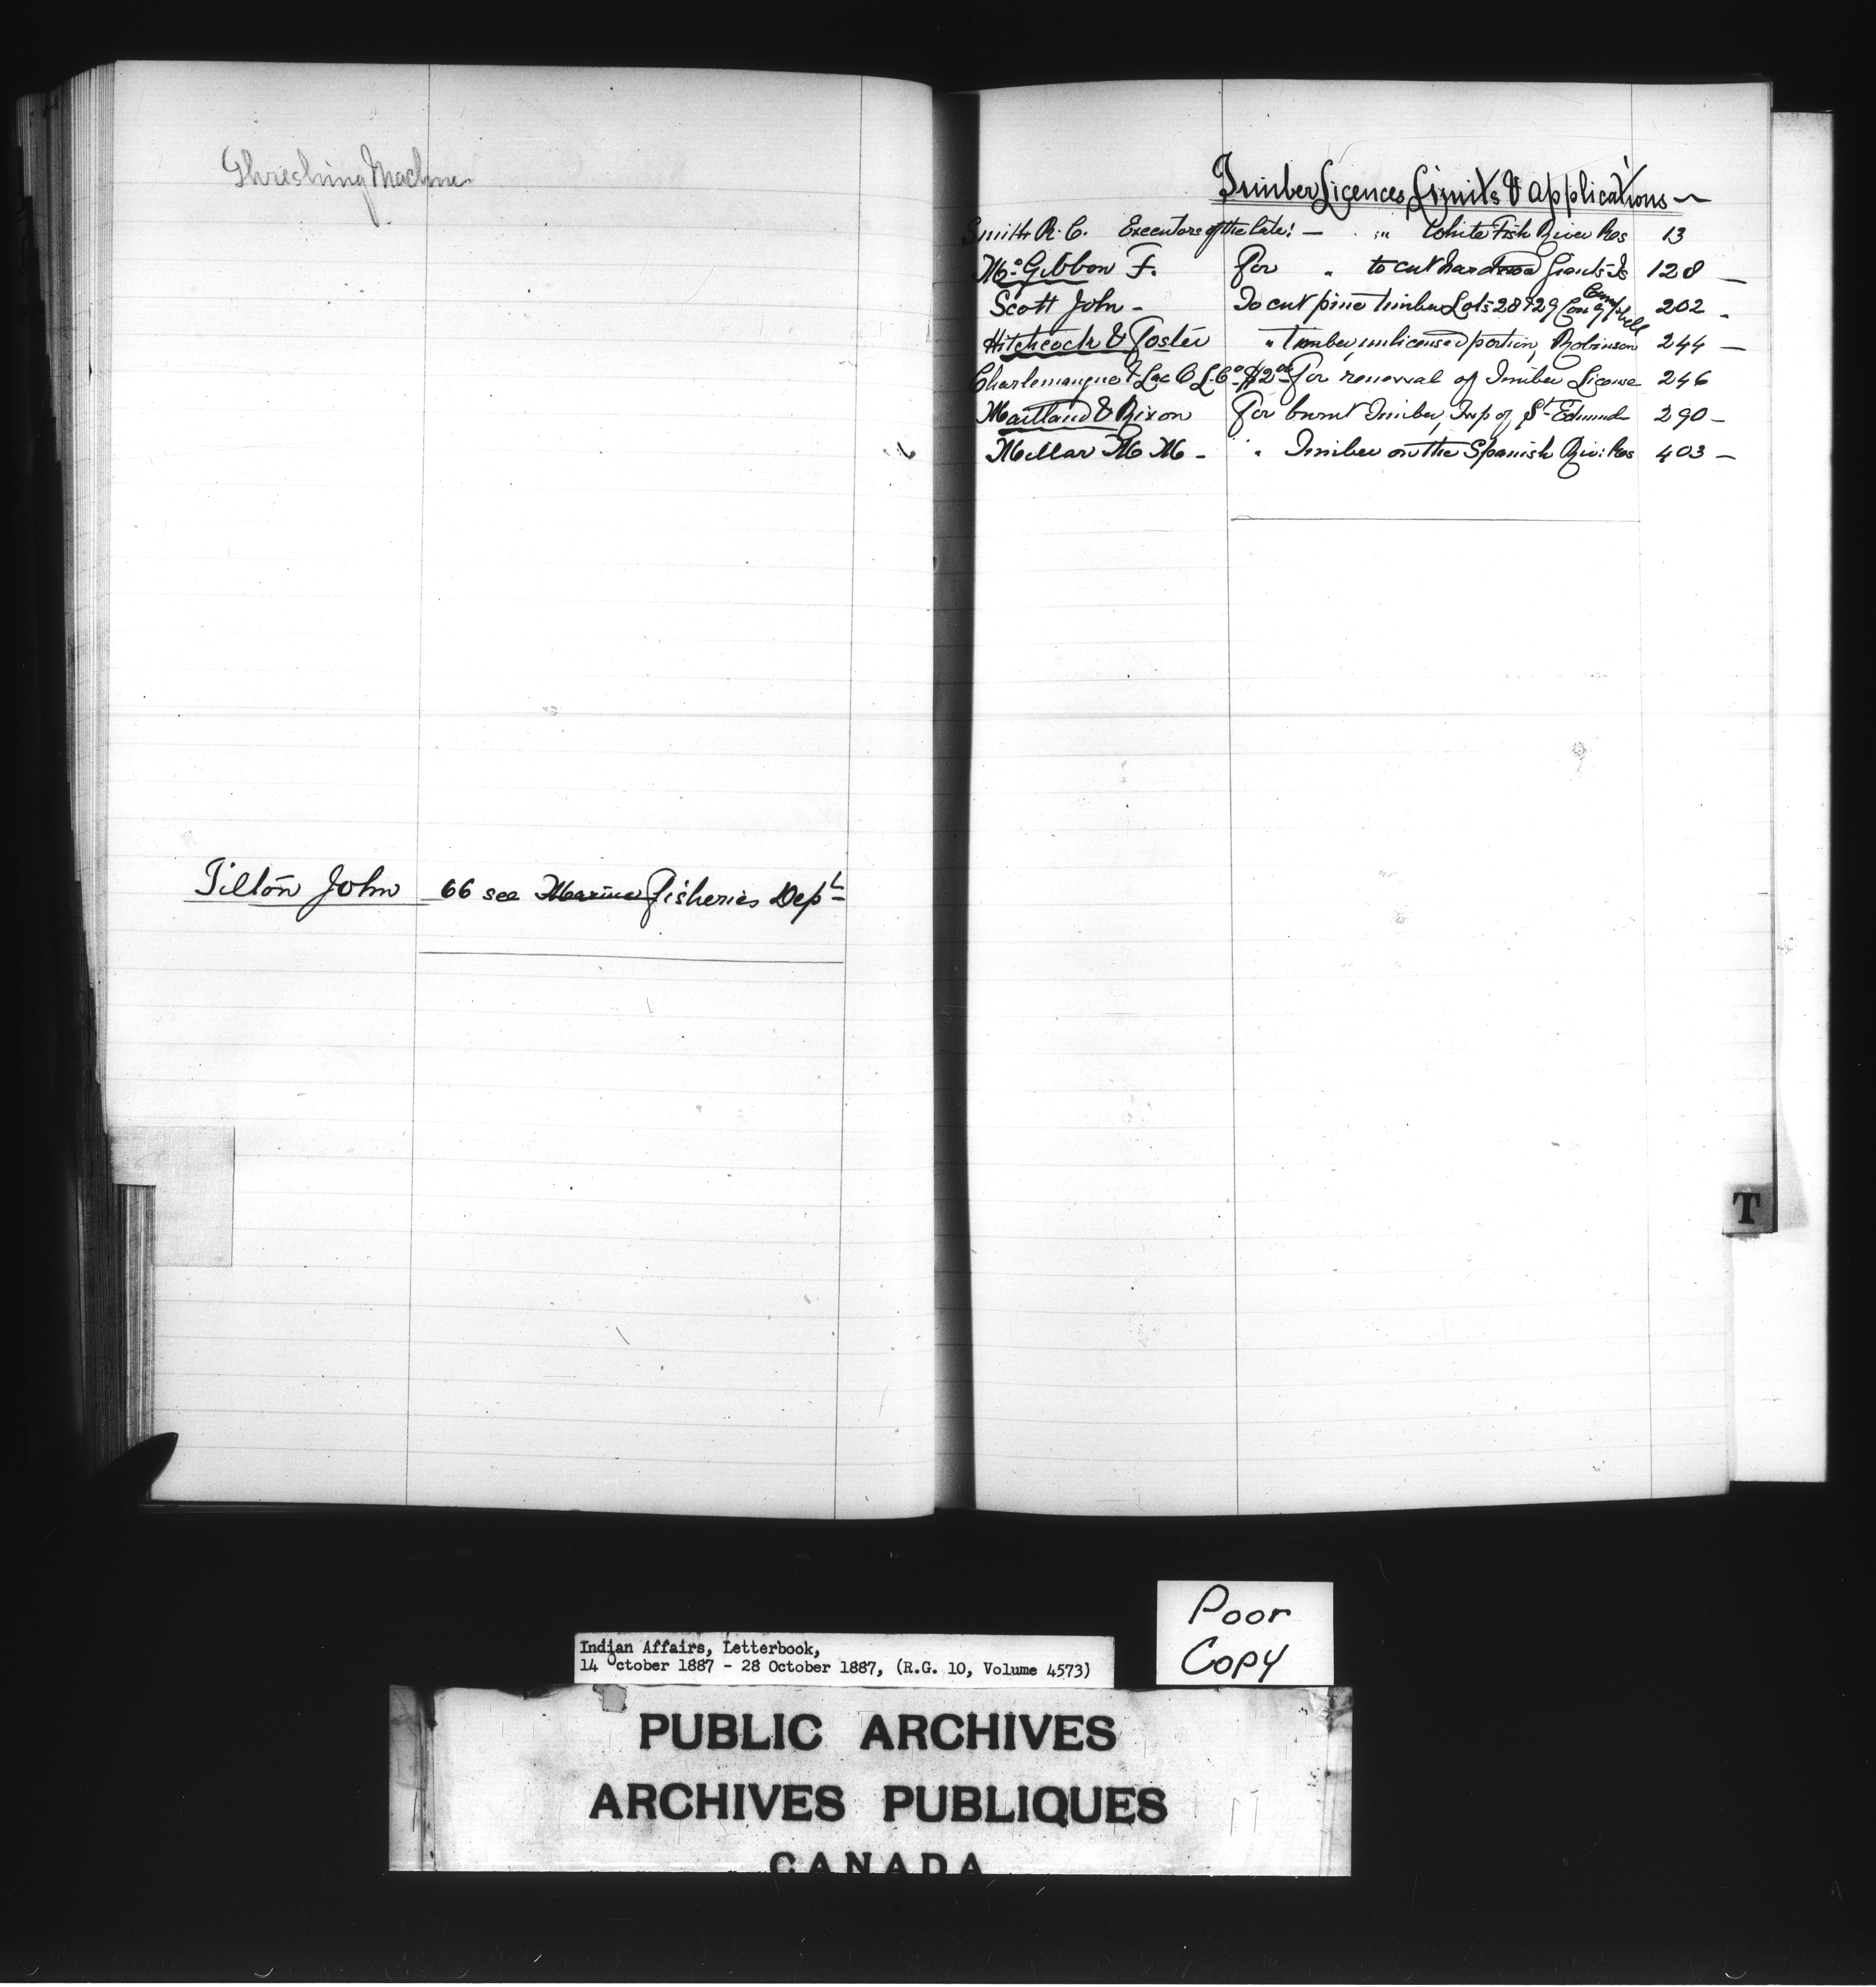 Threshing Machine
Tilton John 66 see Marine Fisheries Dept
Timber Licences, Limits & applications
Smith R. C. Executors of the late! — " White Fish River Res 13
McGibbon F. For " to cut hardwood 128 —
Scott John - To cut pine timber Lots 28 & 29 Con 9 Campbell 202 -
Hitchcock & Foster " Timber, unlicensed portion, Robinson 244 —
Charlemagne & Lac O L. Co $2.00 For renewal of Timber License 246
Maitland & Rixon For burnt Timber, Twp of St Edmund 290 -
Millar M M - " Timber on the Spanish Riv: Res 403 —
T
Poor
Copy
Indian Affairs, Letterbook,
14 October 1887 - 28 October 1887, (R.G. 10, Volume 4573)
PUBLIC ARCHIVES
ARCHIVES PUBLIQUES
CANADA